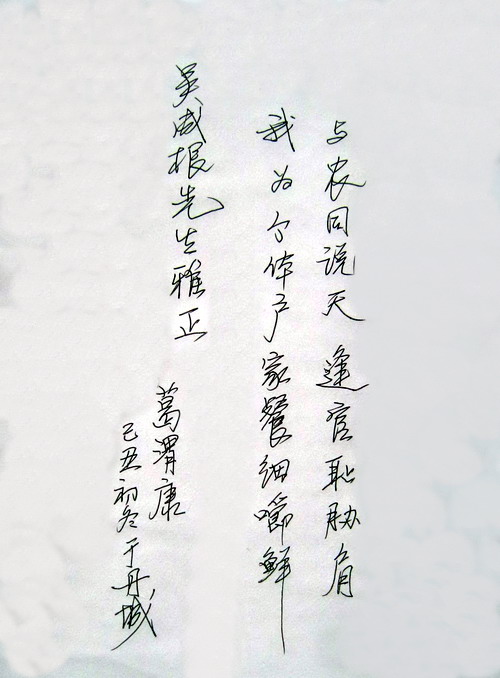 与农同说天 逢官耻胁肩
我为个体户 家餐细嚼鲜
吴成根先生雅正
葛渭康
己丑初冬于丹城